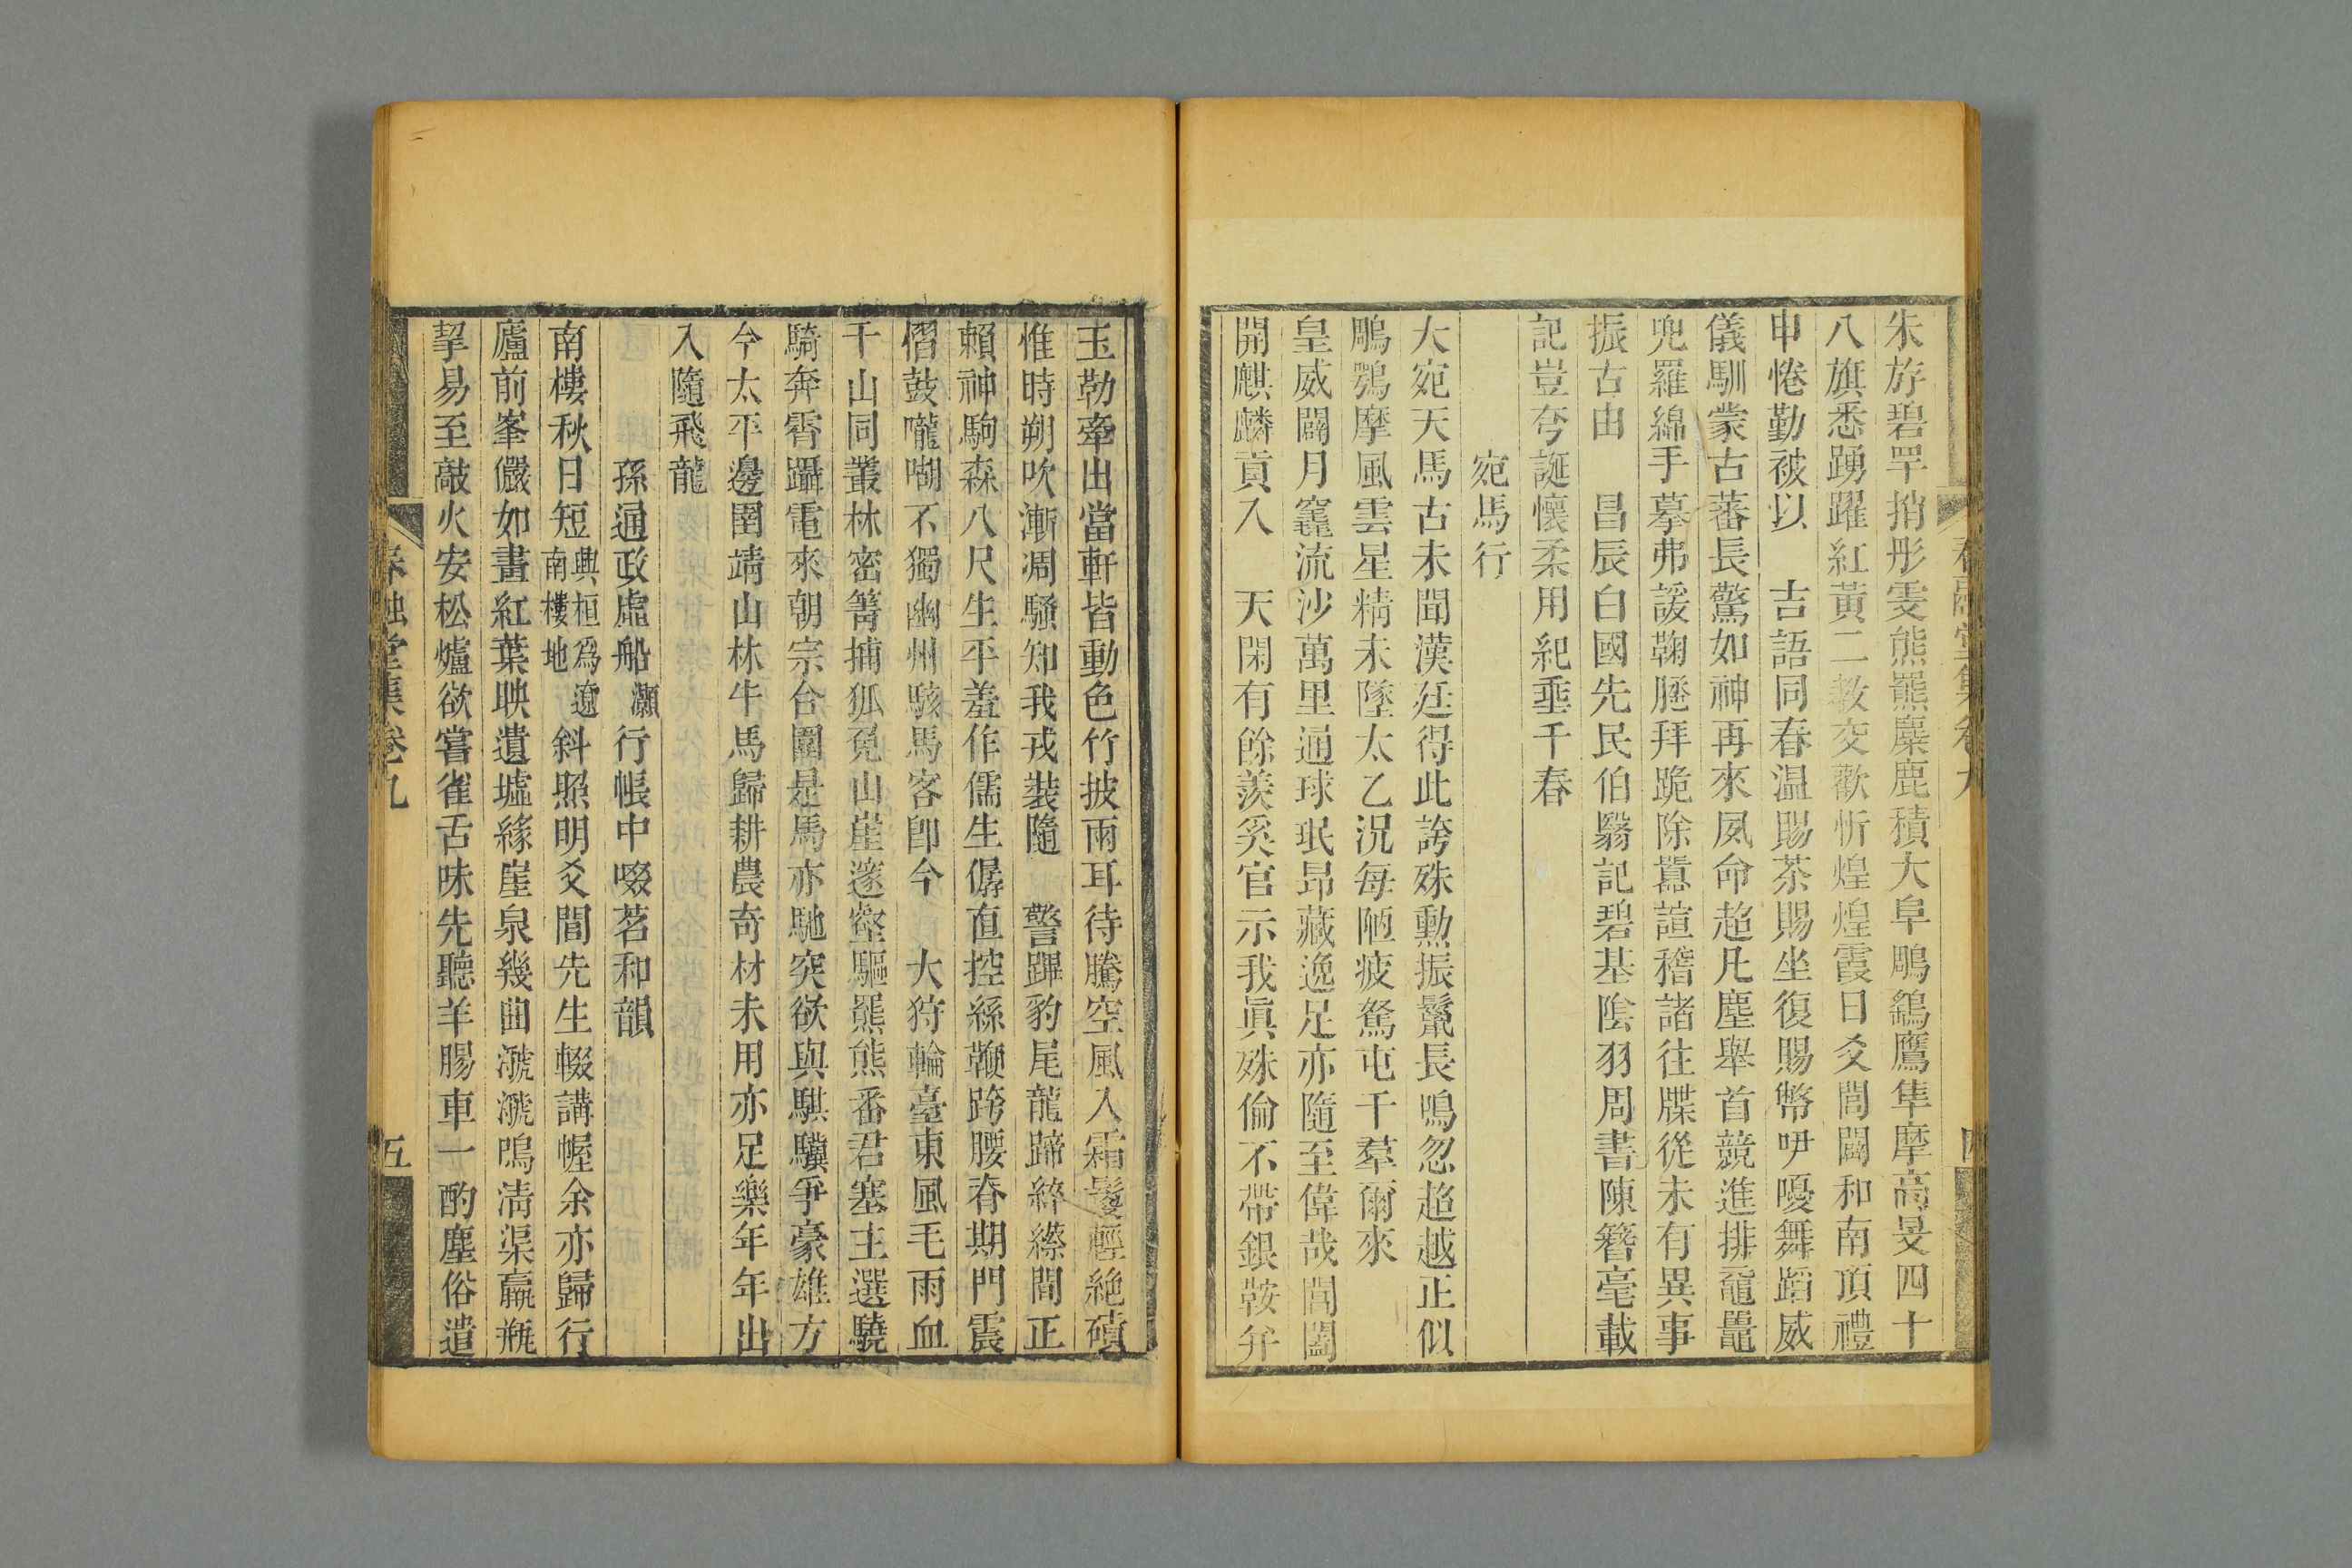 朱斿碧罕捎彤雯熊羆麋鹿積大阜鵰鷂鷹隼摩高旻四十
八旗悉踴躍紅黃二教交歡忻煌煌霞日爻閭闢和南頂禮
申惓勤被以　吉語同春温賜茶賜坐復賜幣吚嚘舞蹈威
儀馴蒙古蕃長驚如神再來夙命超凡塵舉首競進排黿鼉
兜羅綿手摹弗諼鞠䠆拜跪除囂諠稽諸往牒從未有異事
振古由　昌辰白國先民伯翳記碧基陰羽周書陳簪毫載
記豈夸誕懷柔用紀垂千春
宛馬行
大宛天馬古未聞漢廷得此誇殊勲振鬛長鳴忽超越正似
鵰鶚摩風雲星精未墜太乙況每陋疲駑屯千羣爾來
皇威闢月竁流沙萬里通球珉昂藏逸足亦隨至偉哉閶闔
開麒麟貢入　天閑有餘羨奚官示我眞殊倫不帶銀鞍幷
春融堂集卷九
四
玉勒牽出當軒皆動色竹披兩耳待騰空風入霜鬉輕絶磧
惟時朔吹漸凋騷知我戎裝隨　警蹕豹尾龍蹄綷縩間正
賴神駒森八尺生平羞作儒生僝直控絲鞭跨腰脊期門震
慴鼓嚨㗅不獨幽州駭馬客卽今　大狩輪臺東風毛雨血
千山同叢林密箐捕狐兔山崖邃壑驅羆熊番君塞主選驍
騎奔霄躡電來朝宗合圍是馬亦馳突欲與騏驥爭豪雄方
今太平邊圉靖山林牛馬歸耕農奇材未用亦足樂年年出
入隨飛龍
孫通政虛船灝行帳中啜茗和韻
南樓秋日短興桓爲遼南樓地斜照明爻閭先生輟講幄余亦歸行
廬前峯儼如畫紅葉映遺墟緣崖泉幾曲㶁㶁鳴淸渠羸瓶
挈易至敲火安松爐欲嘗雀舌味先聽羊腸車一酌塵俗遣
春融堂集卷九
五